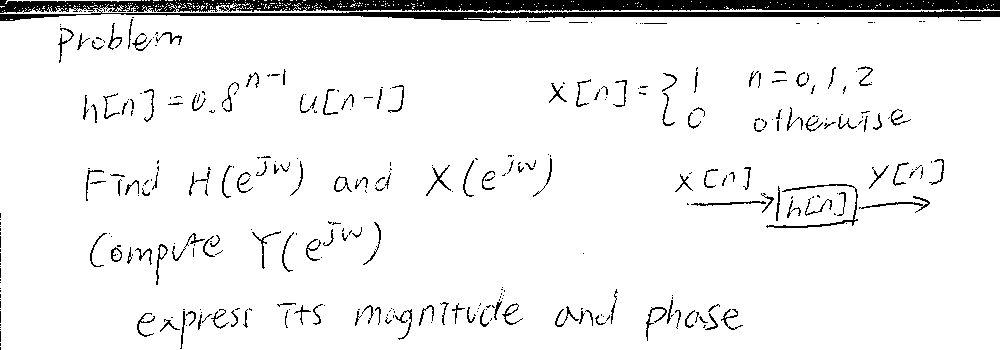 Problem
h[n] = 0.8^{n-1} u[n-1]
x[n] = { 1 n = 0, 1, 2
0 otherwise
Find H(e^{jw}) and X(e^{jw})
x[n] h[n] y[n]
Compute Y(e^{jw})
express its magnitude and phase